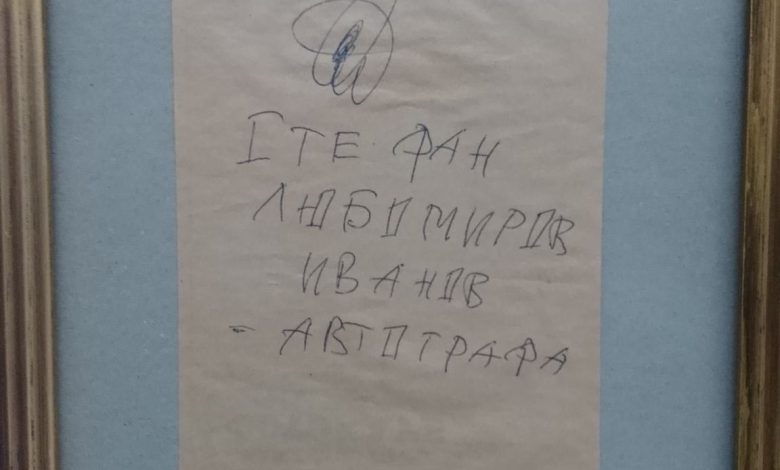 СТЕФАН
ЛЮБОМИРОВ
ИВАНОВ
- АВТОГРАФА